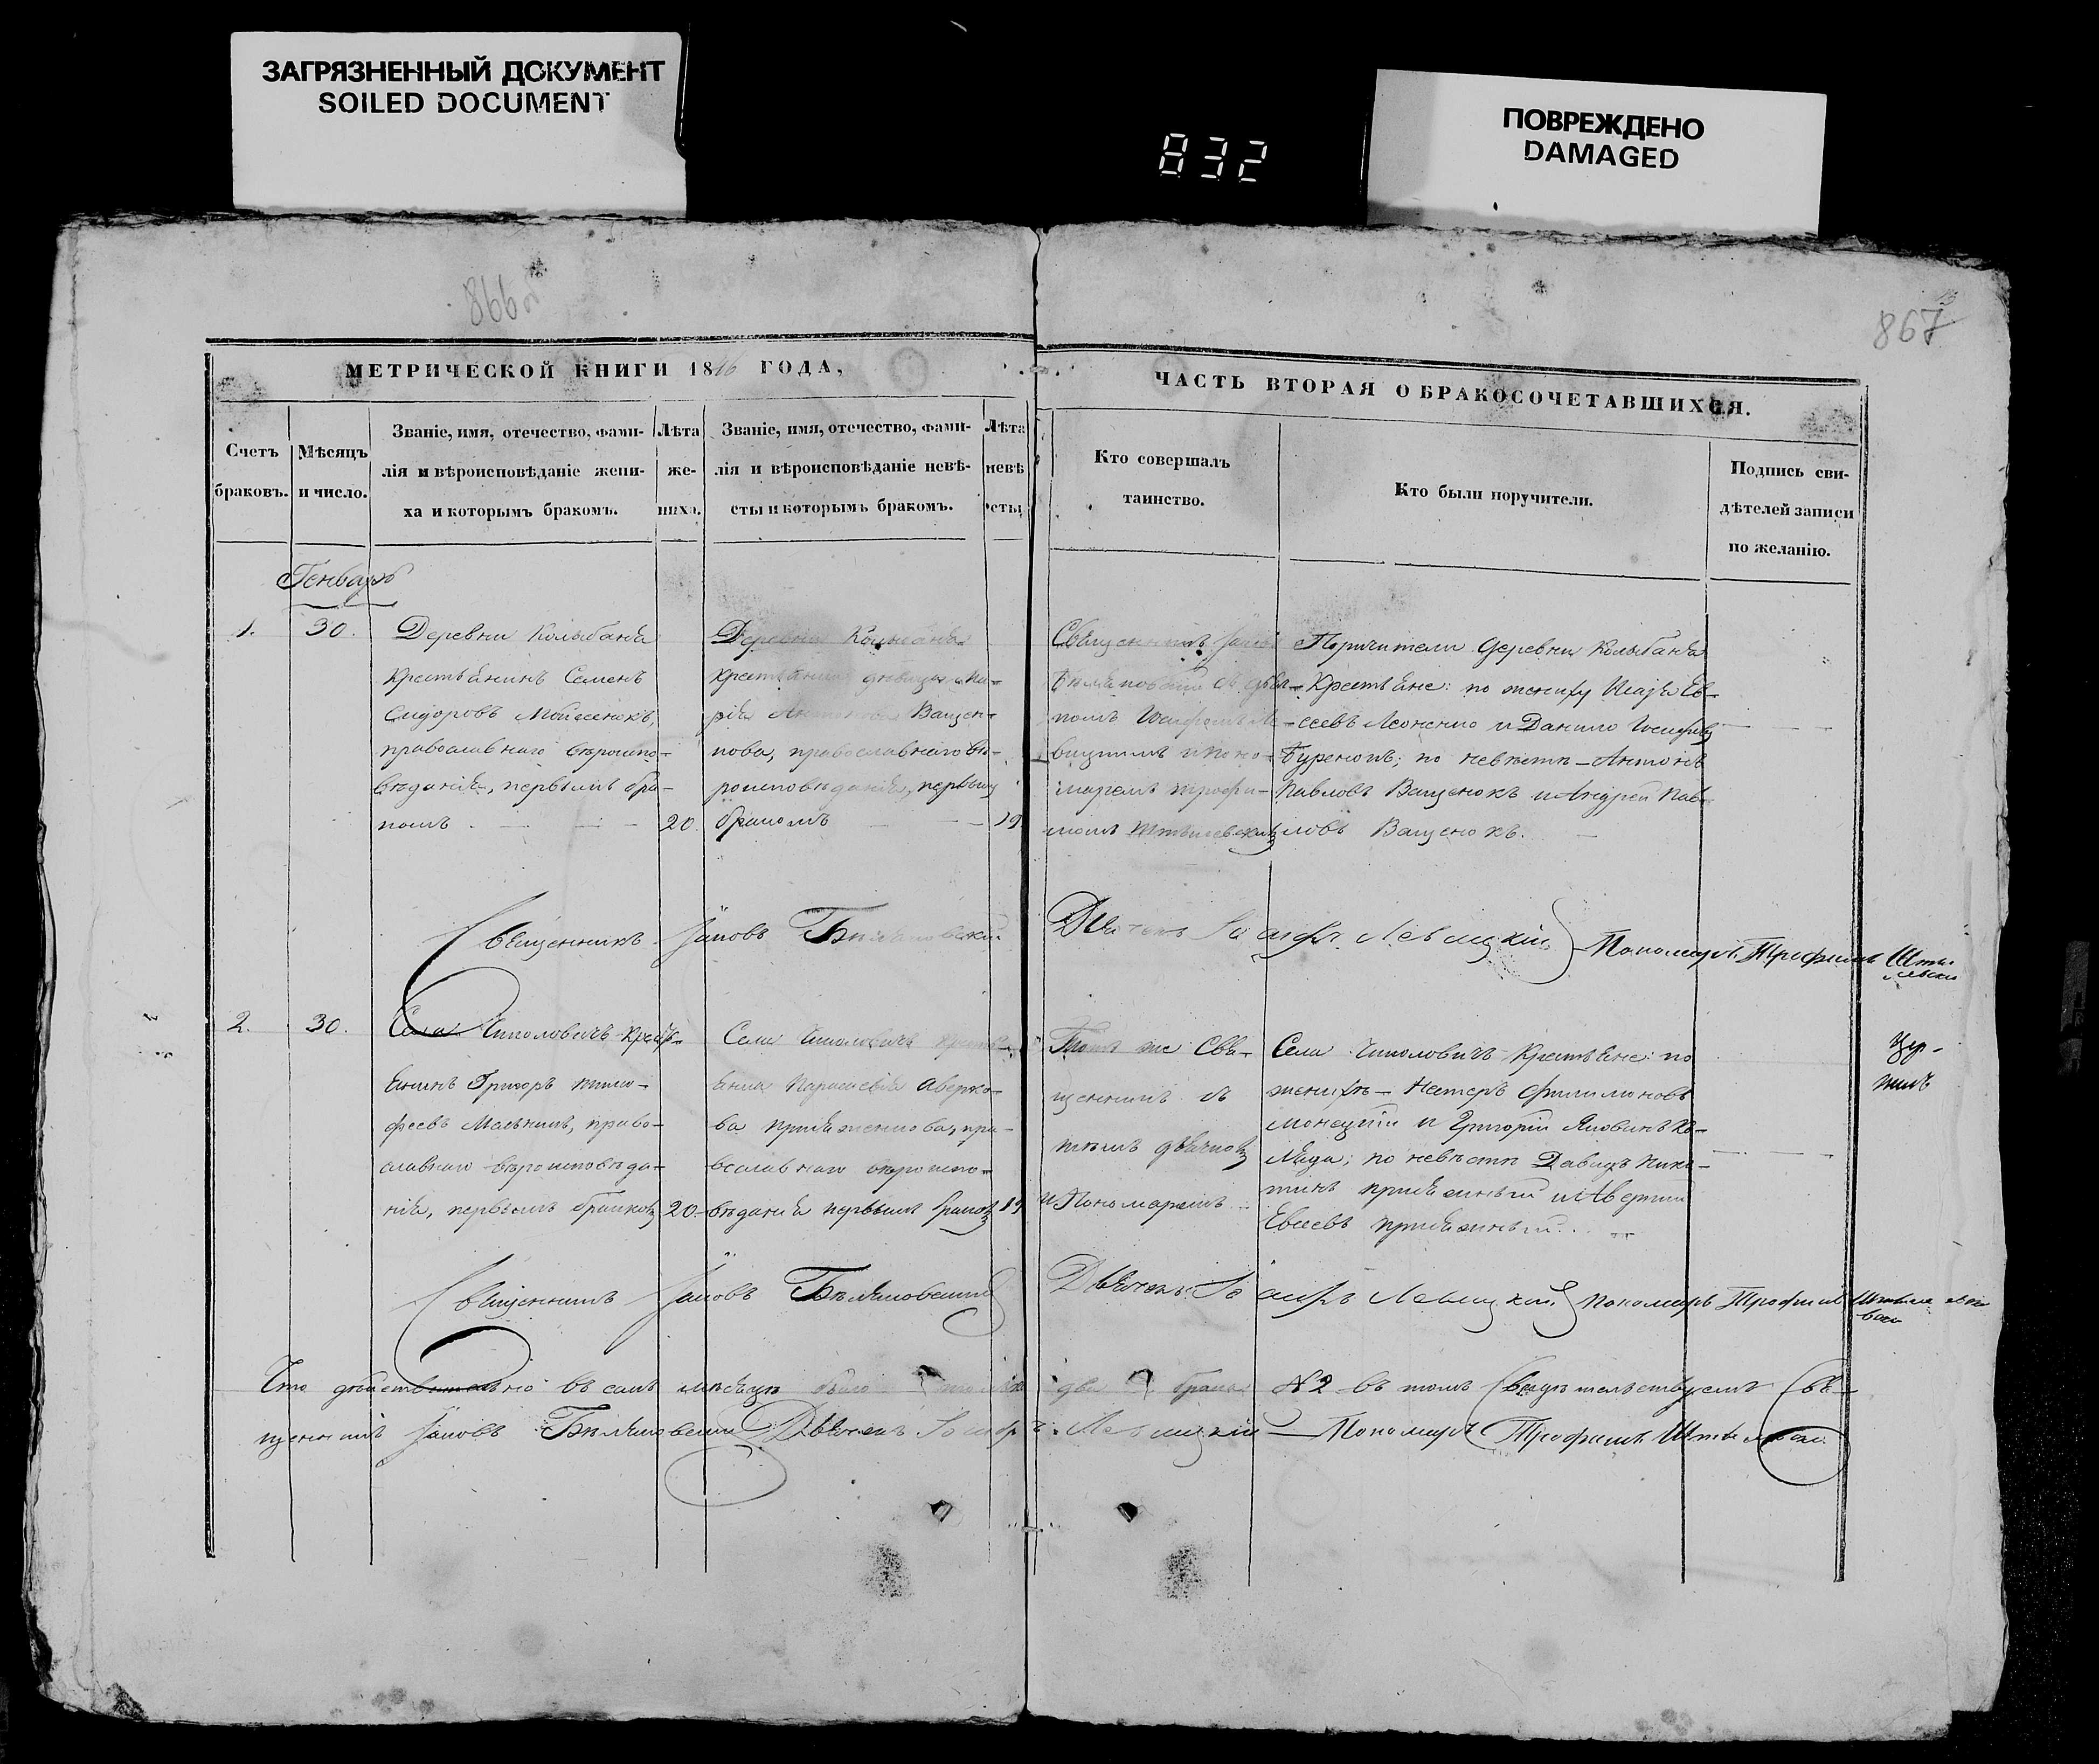 ЗАГРЯЗНЕННЫЙ ДОКУМЕНТ
SOILED DOCUMENT
832
ПОВРЕЖДЕНО
DAMAGED
866об
867
МЕТРИЧЕСКОЙ КНИГИ 1846 ГОДА,
ЧАСТЬ ВТОРАЯ О БРАКОСОЧЕТАВШИХСЯ.
Счетъ
браковъ.
Мѣсяцъ
и число.
Званіе, имя, отечество, фами-
лія и вѣроисповѣданіе жени-
ха и которымъ бракомъ.
Лѣта
же-
ниха.
Званіе, имя, отечество, фами-
лія и вѣроисповѣданіе невѣ-
сты и которымъ бракомъ.
Лѣта
невѣ
сты
Кто совершалъ
таинство.
Кто были поручители.
Подпись сви-
дѣтелей записи
по желанію.
Генварь
1.
30.
Деревни Колыбанья
Крестьянинъ Семенъ
Сидоровъ Мойсеюкъ,
православнаго вѣроиспо-
вѣданія, первымъ бра-
комъ
20.
Деревни
крестьянка дѣвица Ма-
рія Антонова Ващен-
кова, православнаго вѣ-
роисповѣданія, первымъ
бракомъ
19
Священникъ Іаковъ
номъ Іосифомъ Ле-
вицкимъ и поно-
маремъ Трофи-
момъ
Поручители деревни Колыбанья
Крестьяне: по жениху
Леоненко и Данило Іосифовъ
по невѣстѣ – Антонъ
Павловъ Ващенокъ и Андрей Пав-
ловъ Ващенокъ.
Священникъ Іаковъ Бѣляновскій
Дьячекъ Іосифъ Левицкій
Пономарь Трофимъ
2.
30.
Села Чиколовичъ Крестья-
янинъ Григоръ Тимо-
феевъ Мельникъ, право-
славнаго вѣроисповѣда-
нія, первымъ бракомъ
20.
Села Чиколовичъ
янка Параскевія Аверко-
ва
вославнаго вѣроиспо-
вѣданія первымъ бракомъ
19
Тотъ же Свя-
щенникъ съ
тѣмъ дьячкомъ
и Пономаремъ
Села Чиколовичъ Крестьяне: по
женихѣ – Нестеръ Филимоновъ
и Григорій
по невѣстѣ Давидъ Ники-
тинъ и Аверкій
Евсеевъ
Священникъ Іаковъ Бѣляновскій
Дьячекъ Іосифъ Левицкій
пономарь Трофимъ
Что дѣйствительно въ семъ мѣсяцѣ было только два брака № 2 въ томъ Свидѣтельствуемъ Свя-
щенникъ Іаковъ Бѣляновскій Дьячекъ Іосифъ Левицкій – Пономарь Трофимъ